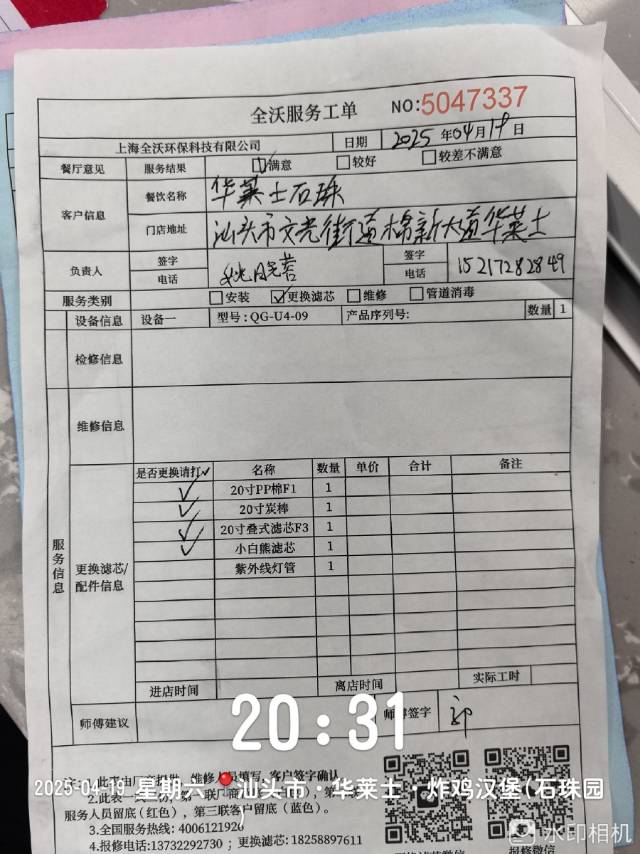 全沃服务工单 NO:5047337
上海全沃环保科技有限公司 日期 2025 年 04 月 19 日
餐厅意见 服务结果 ☑满意 □较好 □较差不满意
客户信息 餐饮名称 华莱士石珠
门店地址 汕头市文光街道棉新大道华莱士
负责人 签字 签字
电话 电话 15217282849
服务类别 □安装 ☑更换滤芯 □维修 □管道消毒
设备信息 设备一 型号:QG-U4-09 产品序列号: 数量 1
检修信息
服务信息
维修信息
更换滤芯/配件信息
是否更换请打✓ 名称 数量 单价 合计 备注
✓ 20寸PP棉F1 1
✓ 20寸炭棒 1
✓ 20寸叠式滤芯F3 1
✓ 小白熊滤芯 1
紫外线灯管 1
进店时间 离店时间 实际工时
师傅建议 师傅签字
20:31
2025-04-19 星期六 汕头市·华莱士·炸鸡汉堡(石珠园)
填写,客户签字确认
服务人员留底(红色),第三联客户留底(蓝色)。
3.全国服务热线:4006121926
4.报修电话:13732292730 ; 更换滤芯:18258897611
报修微信
水印相机